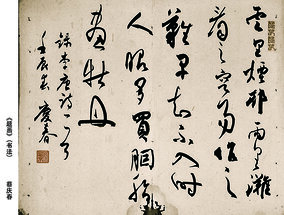 雲里煙邨雨里灘
看之容易作之
難早知不入時
人眼多買胭脂
畫牡丹
錄李唐詩一首
壬辰春 慶春
《題畫》(書法)
蔡慶春